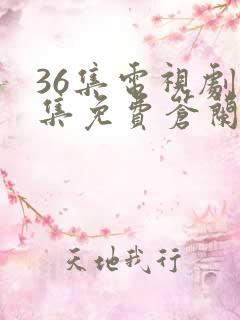 36集電視劇
集免費簽闌
天地我行